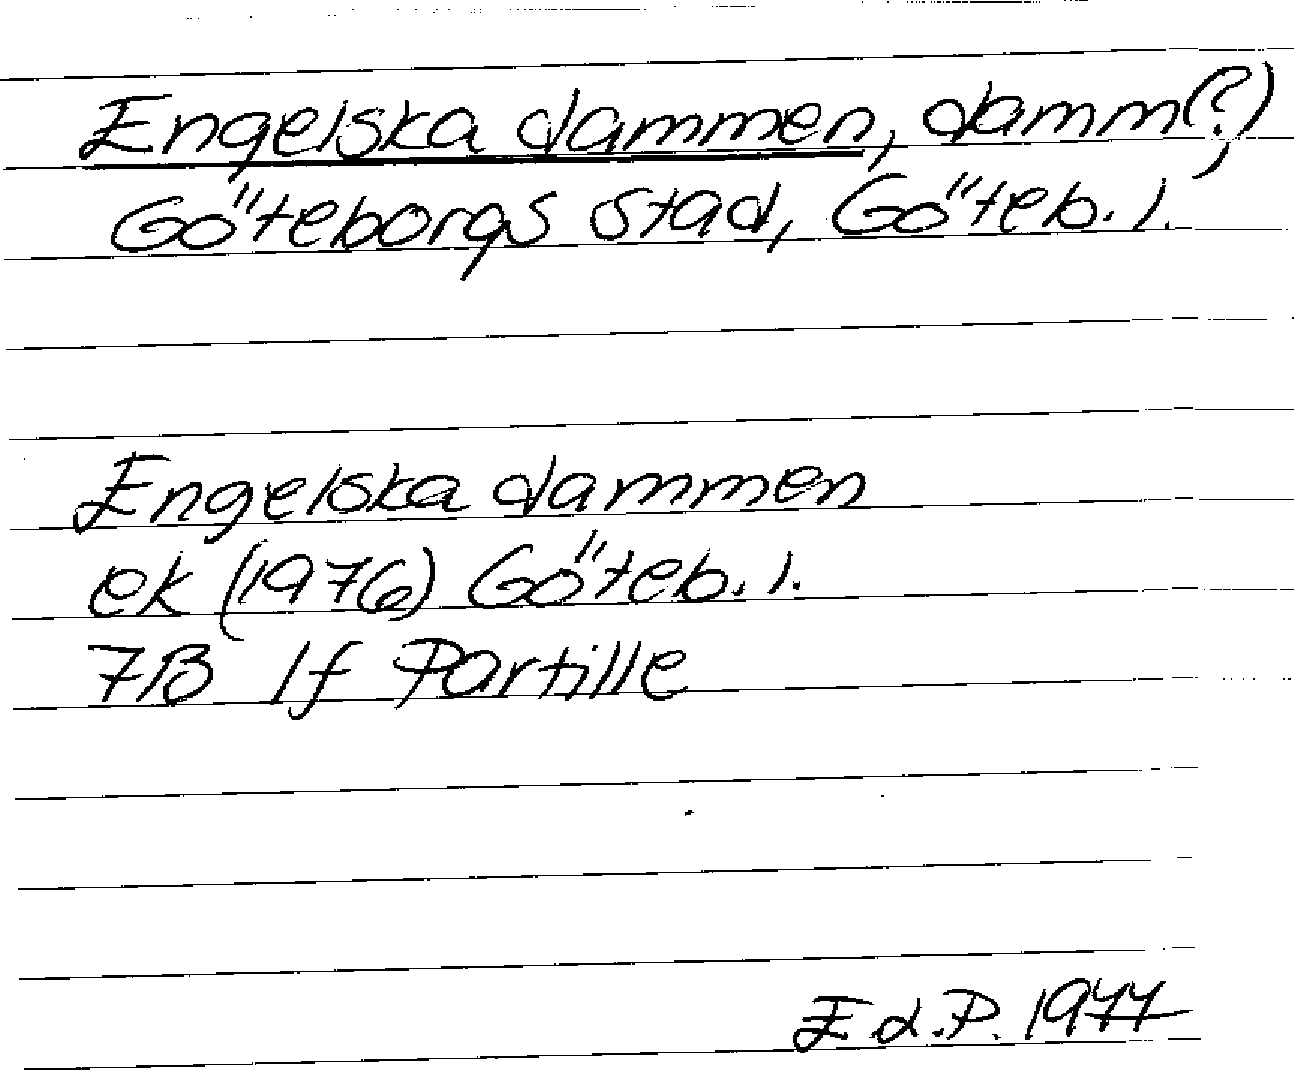 Engelska dammen, damm(?),
Göteborgs stad, Göteb. l.
Engelska dammen
ek (1976) Göteb. l.
7B 1f Partille
E d. P. 1977